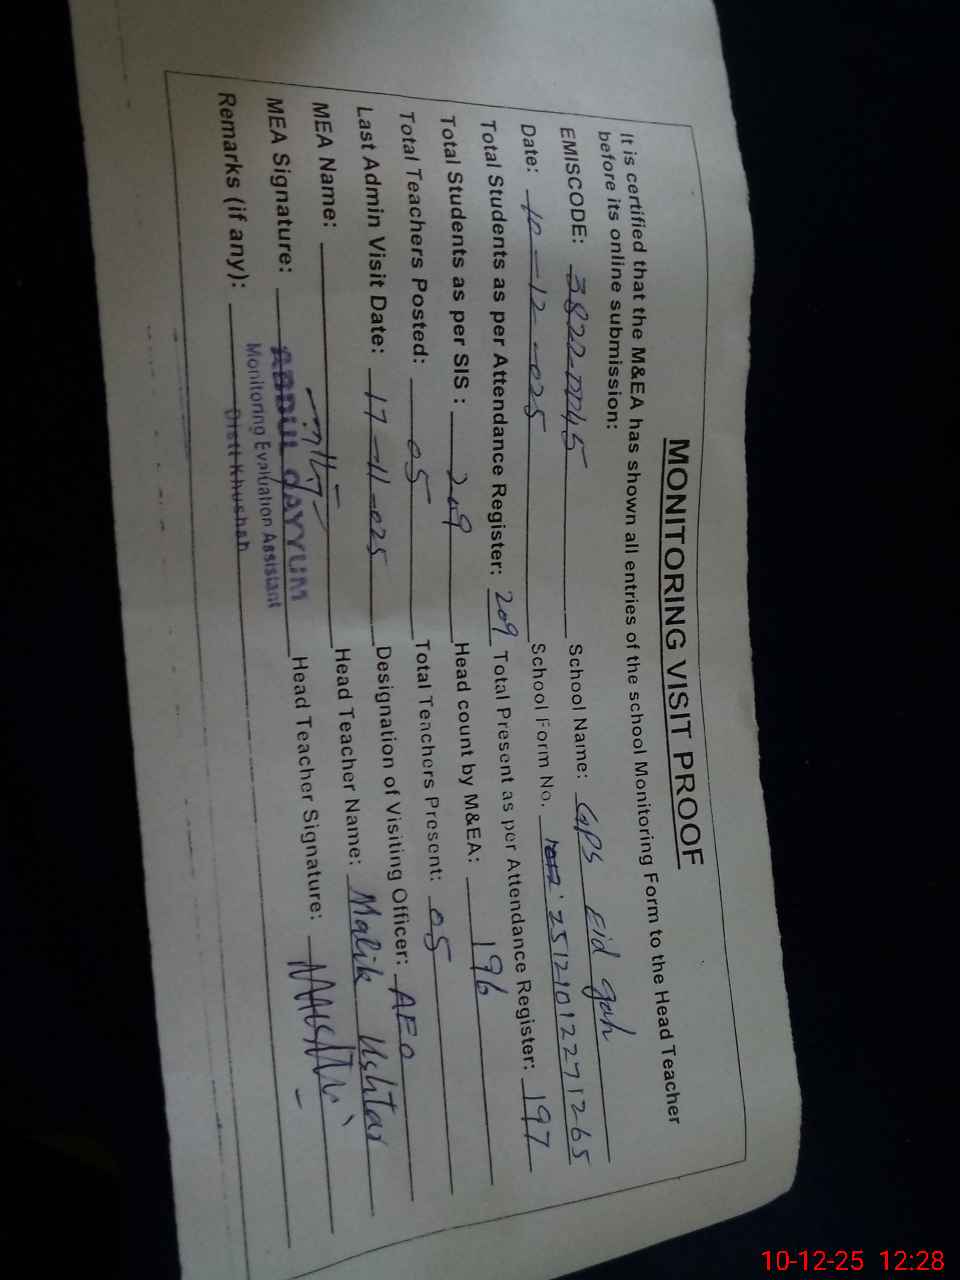 MONITORING VISIT PROOF
It is certified that the M&EA has shown all entries of the school Monitoring Form to the Head Teacher
before its online submission:
EMISCODE: 3822-PP45 School Name: GPS Eid gah
Date: 10-12-025 School Form No. 2512101227 1265
Total Students as per Attendance Register: 209 Total Present as per Attendance Register: 197
Total Students as per SIS : 209 Head count by M&EA: 196
Total Teachers Posted: 05 Total Teachers Present: 05
Last Admin Visit Date: 17-11-025 Designation of Visiting Officer: AEO
MEA Name: Head Teacher Name: Malik Ushtar
MEA Signature: ABDUL QAYYUM Head Teacher Signature:
Monitoring Evaluation Assistant
Remarks (if any): Distt Khushab
10-12-25 12:28